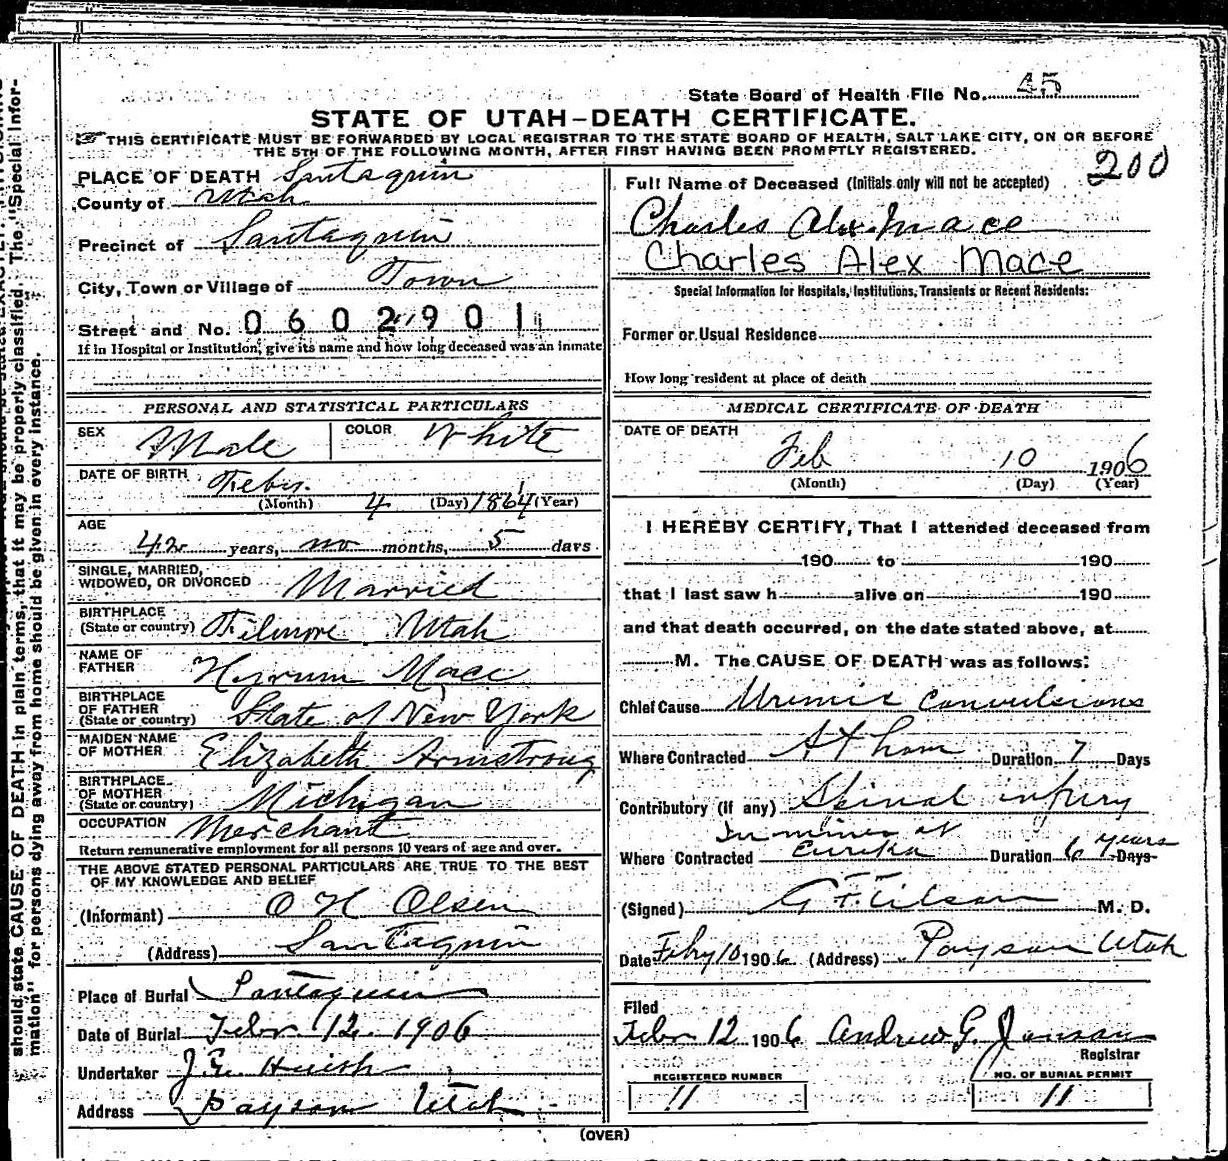 State Board of Health File No. 45
STATE OF UTAH-DEATH CERTIFICATE.
THIS CERTIFICATE MUST BE FORWARDED BY LOCAL REGISTRAR TO THE STATE BOARD OF HEALTH, SALT LAKE CITY, ON OR BEFORE
THE 5TH OF THE FOLLOWING MONTH, AFTER FIRST HAVING BEEN PROMPTLY REGISTERED.
200
PLACE OF DEATH Santaquin
County of Utah
Precinct of Santaquin
City, Town or Village of Town
Street and No. 0602901
If in Hospital or Institution, give its name and how long deceased was an inmate
PERSONAL AND STATISTICAL PARTICULARS
SEX Male COLOR White
DATE OF BIRTH Feby. 4 1864
(Month) (Day) (Year)
AGE
42 years, no months, 5 days
SINGLE, MARRIED,
WIDOWED, OR DIVORCED Married
BIRTHPLACE
(State or country) Filmore Utah
NAME OF
FATHER Hyrum Mace
BIRTHPLACE
OF FATHER
(State or country) State of New York
MAIDEN NAME
OF MOTHER Elizabeth Armstrong
BIRTHPLACE
OF MOTHER
(State or country) Michigan
OCCUPATION Merchant
Return remunerative employment for all persons 10 years of age and over.
THE ABOVE STATED PERSONAL PARTICULARS ARE TRUE TO THE BEST
OF MY KNOWLEDGE AND BELIEF
(Informant) O H Olsen
(Address) Santaquin
Place of Burial Santaquin
Date of Burial Febr 12. 1906
Undertaker J. E. Huish
Address Payson Utah
Full Name of Deceased (Initials only will not be accepted)
Charles Alex. Mace
Charles Alex Mace
Special Information for Hospitals, Institutions, Transients or Recent Residents:
Former or Usual Residence
How long resident at place of death
MEDICAL CERTIFICATE OF DEATH
DATE OF DEATH
Feb 10 1906
(Month) (Day) (Year)
I HEREBY CERTIFY, That I attended deceased from
190 to 190
that I last saw h alive on 190
and that death occurred, on the date stated above, at
M. The CAUSE OF DEATH was as follows:
Chief Cause Uremic Convulsions
Where Contracted At home Duration 7 Days
Contributory (if any) Spinal injury
In mines at
Where Contracted Eureka Duration 6 years Days
(Signed) G. F. Tilson M. D.
Date Feby 10 1906 (Address) Payson Utah
Filed
Febr 12 1906 Andrew G. Jonson
Registrar
REGISTERED NUMBER
11
NO. OF BURIAL PERMIT
11
(OVER)
should state CAUSE OF DEATH in plain terms, that it may be properly classified. The "Special Infor-
mation" for persons dying away from home should be given in every instance.